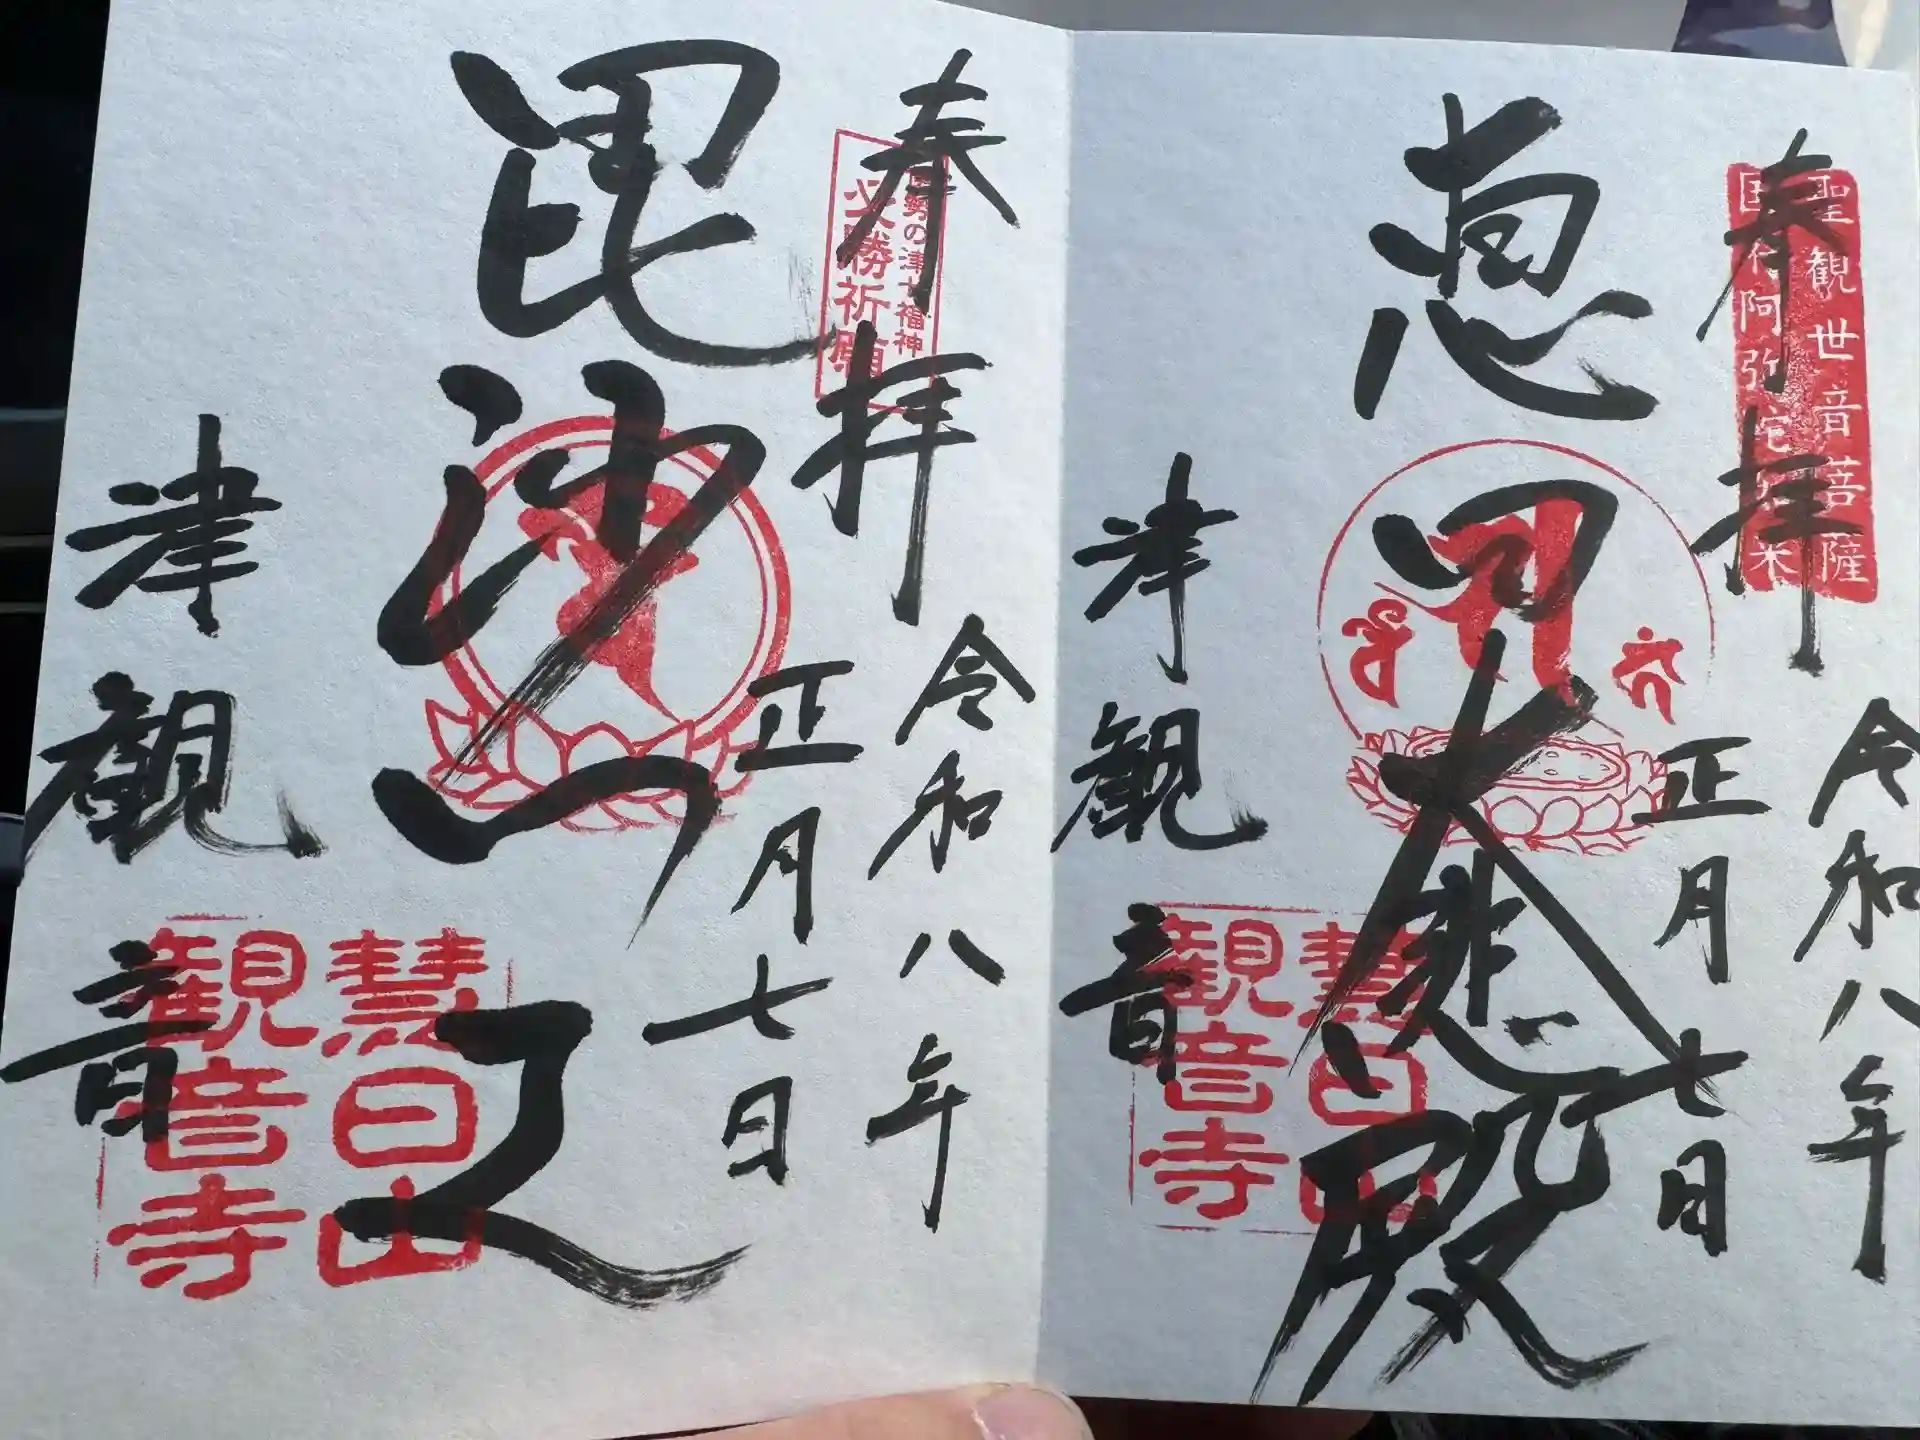 聖観世音菩薩
国府阿弥陀如来
奉拝
令和八年
正月七日
恵日大悲殿
津観音
慧日山
観音寺
奉拝
伊勢の津七福神
必勝祈願
令和八年
正月七日
毘沙門天
津観音
慧日山
観音寺